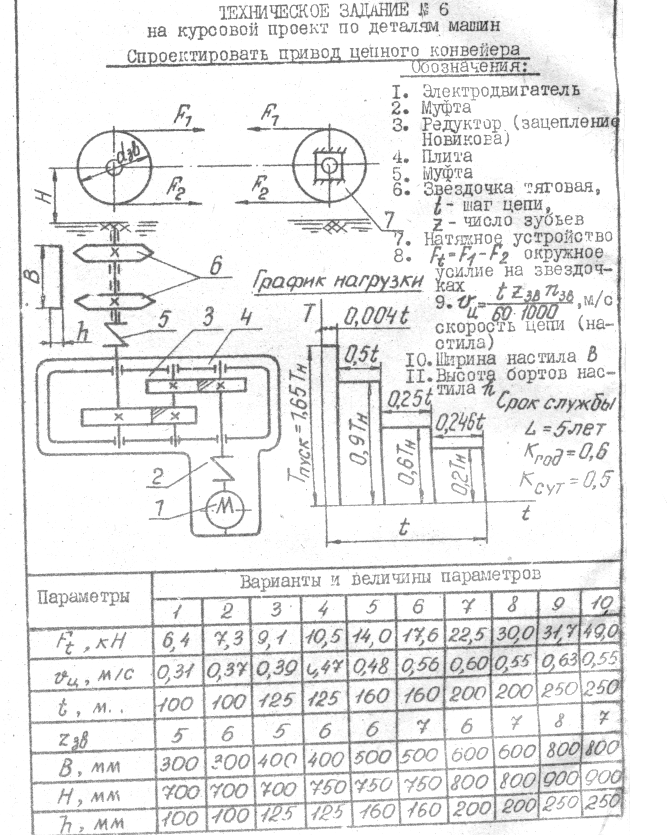 ТЕХНИЧЕСКОЕ ЗАДАНИЕ № 6
на курсовой проект по деталям машин
Спроектировать привод цепного конвейера
Обозначения:
1. Электродвигатель
2. Муфта
3. Редуктор (зацепление
Новикова)
4. Плита
5. Муфта
6. Звездочка тяговая,
t - шаг цепи,
z - число зубьев
7. Натяжное устройство
8. Ft=F1-F2 окружное
усилие на звездоч-
ках
9. vц = t zзв nзв / 60·1000, м/с
скорость цепи (на-
стила)
10. Ширина настила B
11. Высота бортов нас-
тила h
F1
F1
dзв
F2
F2
H
7
B
h
6
5
3
4
2
1
М
График нагрузки
T
0,004t
0,5t
0,25t
0,246t
Tпуск = 1,65Tн
0,9Tн
0,6Tн
0,2Tн
t
t
Срок службы
L = 5 лет
Kгод = 0,6
Kсут = 0,5
Параметры
Варианты и величины параметров
1 2 3 4 5 6 7 8 9 10
Ft, кН 6,4 7,3 9,1 10,5 14,0 17,6 22,5 30,0 31,7 49,0
vц, м/с 0,31 0,37 0,39 0,47 0,48 0,56 0,60 0,55 0,63 0,55
t, м.. 100 100 125 125 160 160 200 200 250 250
zзв 5 6 5 6 6 7 6 7 8 7
B, мм 300 300 400 400 500 500 600 600 800 800
H, мм 700 700 700 750 750 750 800 800 900 900
h, мм 100 100 125 125 160 160 200 200 250 250